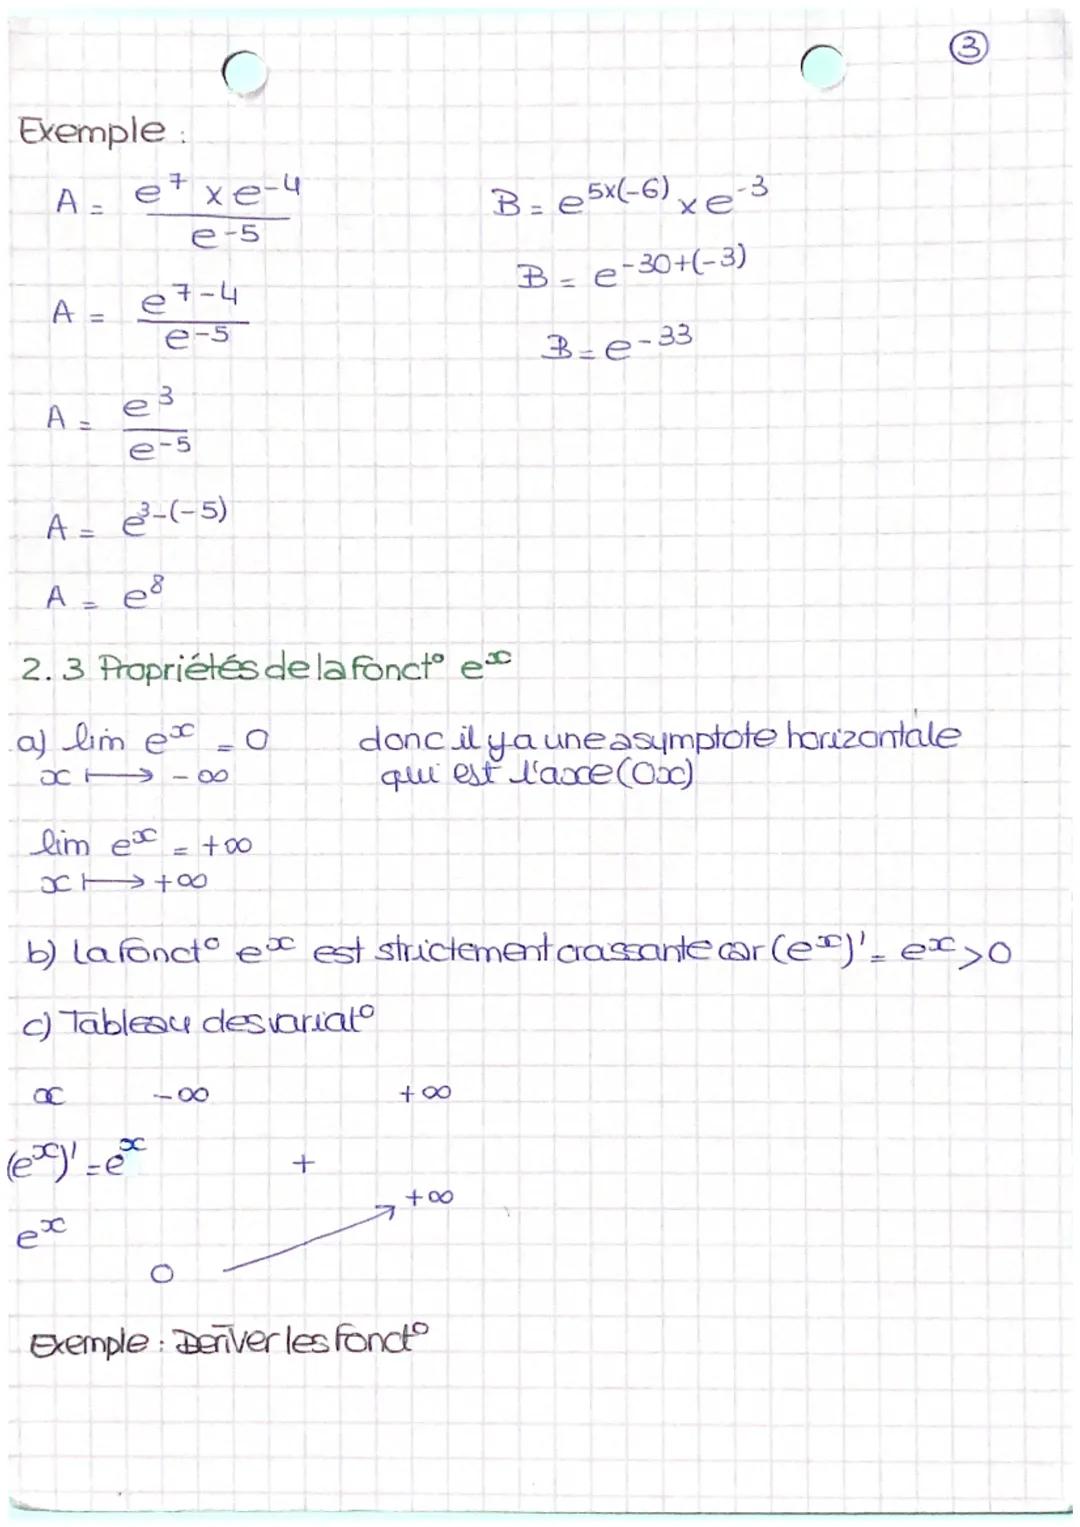 ③
Exemple :
A = e^7 × e^-4 / e^-5
A = e^7-4 / e^-5
A = e^3 / e^-5
A = e^3-(-5)
A = e^8
B = e^5×(-6) × e^-3
B = e^-30+(-3)
B = e^-33
2.3 Propriétés de la fonct° e^x
a) lim e^x = 0 donc il y a une asymptote horizontale
x ↦ -∞ qui est l'axe (Ox)
lim e^x = +∞
x ↦ +∞
b) La fonct° e^x est strictement croissante car (e^x)' = e^x > 0
c) Tableau des variat°
x -∞ +∞
(e^x)' = e^x +
e^x 0 +∞
Exemple : Dériver les fonct°